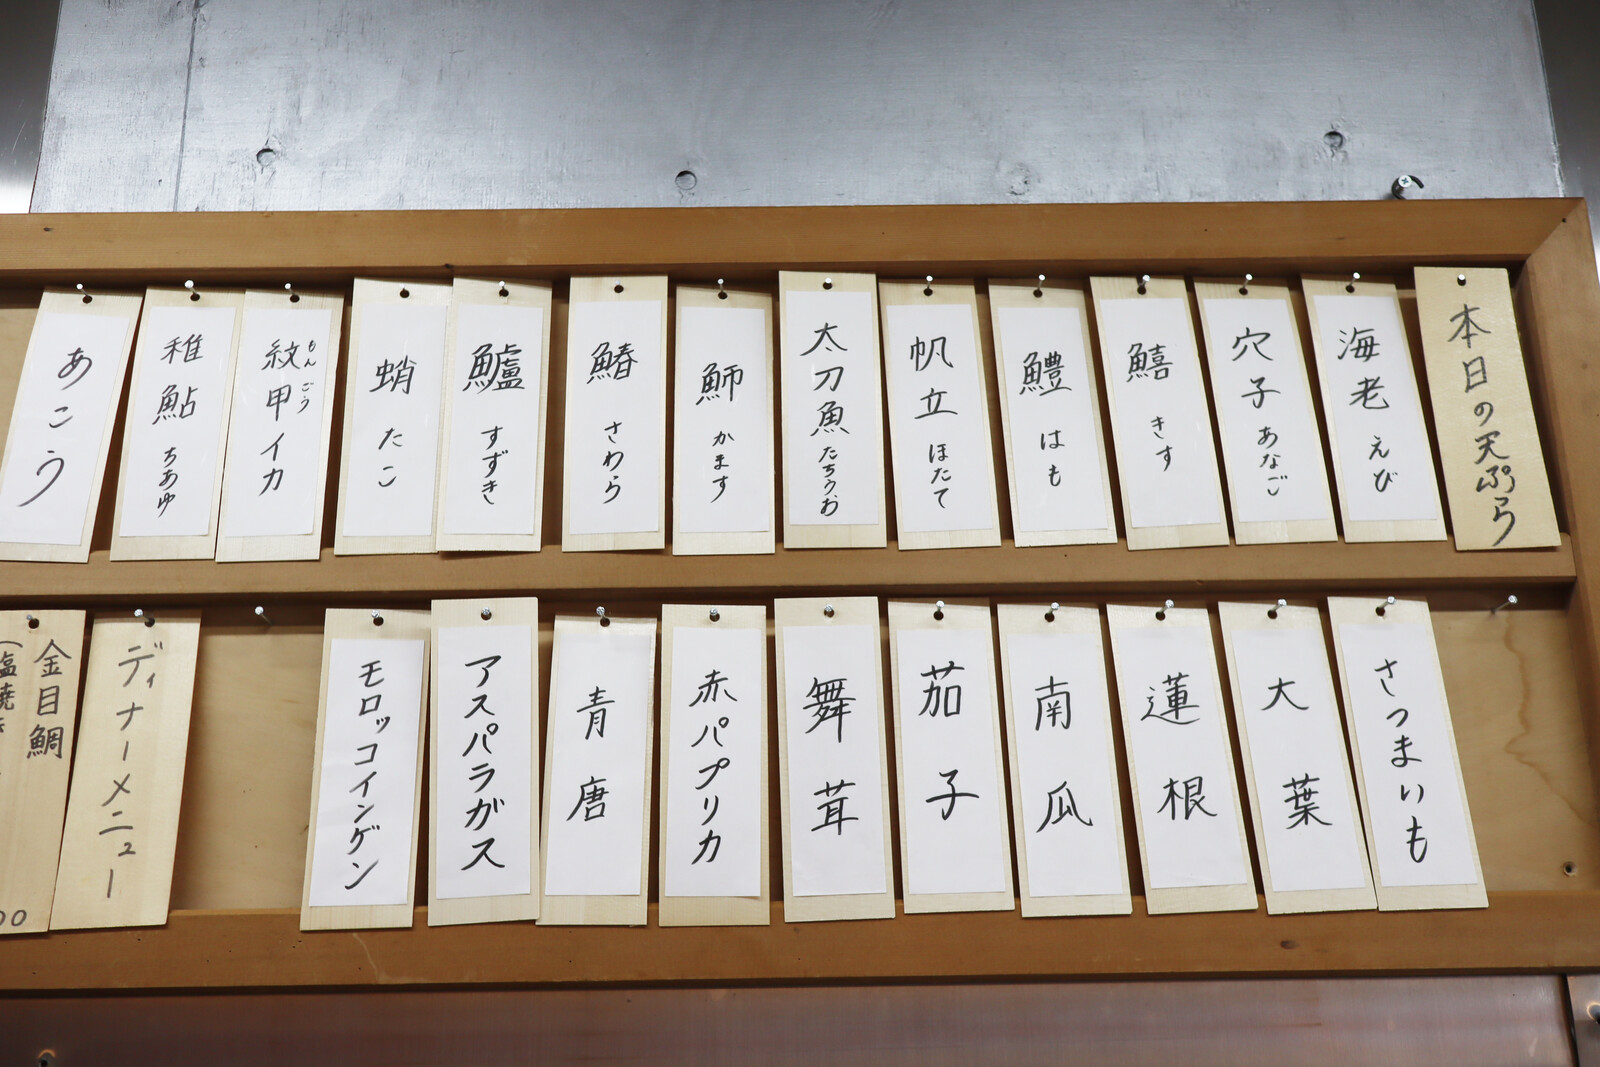 本日の天ぷら
海老 えび
穴子 あなご
鱚 きす
鱧 はも
帆立 ほたて
太刀魚 たちうお
魳 かます
鰆 さわら
鱸 すずき
蛸 たこ
紋甲イカ もんごう
稚鮎 ちあゆ
あこう
さつまいも
大葉
蓮根
南瓜
茄子
舞茸
赤パプリカ
青唐
アスパラガス
モロッコインゲン
ディナーメニュー
金目鯛
(塩焼き
00